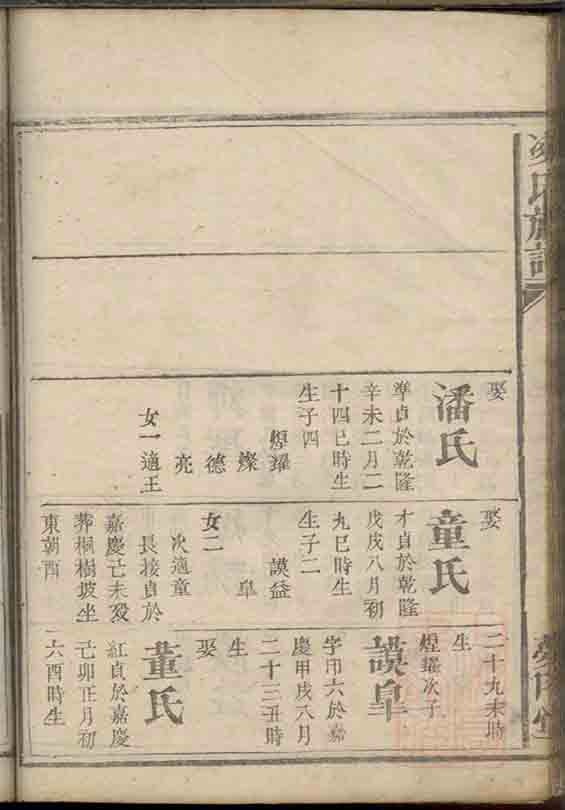 娶
潘氏
準貞於乾隆
辛未二月二
十四巳時生
生子四
煜耀
燦
德
亮
女一適王
娶
童氏
才貞於乾隆
戊戌八月初
九巳時生
生子二
謨益
阜
女二
次適童
長接貞於
嘉慶己未歿
葬桐樹坡坐
東朝酉
二十九未時
生
煜耀次子
謨阜
字印六於嘉
慶甲戌八月
二十三丑時
生
娶
董氏
紅貞於嘉慶
己卯正月初
六酉時生
氏族譜